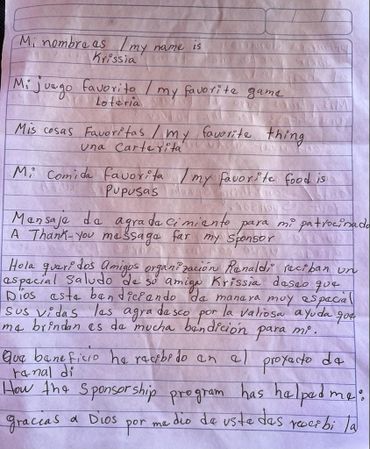 Mi nombre es / my name is
Krissia
Mi juego favorito / my favorite game
Loteria
Mis cosas Favoritas / my favorite thing
una carterita
Mi comida favorita / my favorite food is
PUPUSAS
Mensaje de agradecimiento para mi patrocinado
A Thank-you message far my sponsor
Hola queridos amigos organización Renaldi reciban un
especial saludo de su amiga Krissia deseo que
Dios este bendiciendo de manera muy especial
sus vidas les agradesco por la valiosa ayuda que
me brindan es de mucha bendición para mi.
Que beneficio he recibido en el proyecto de
renal di
How the sponsorship program has helped me:
gracias a Dios por medio de ustedes recibi la